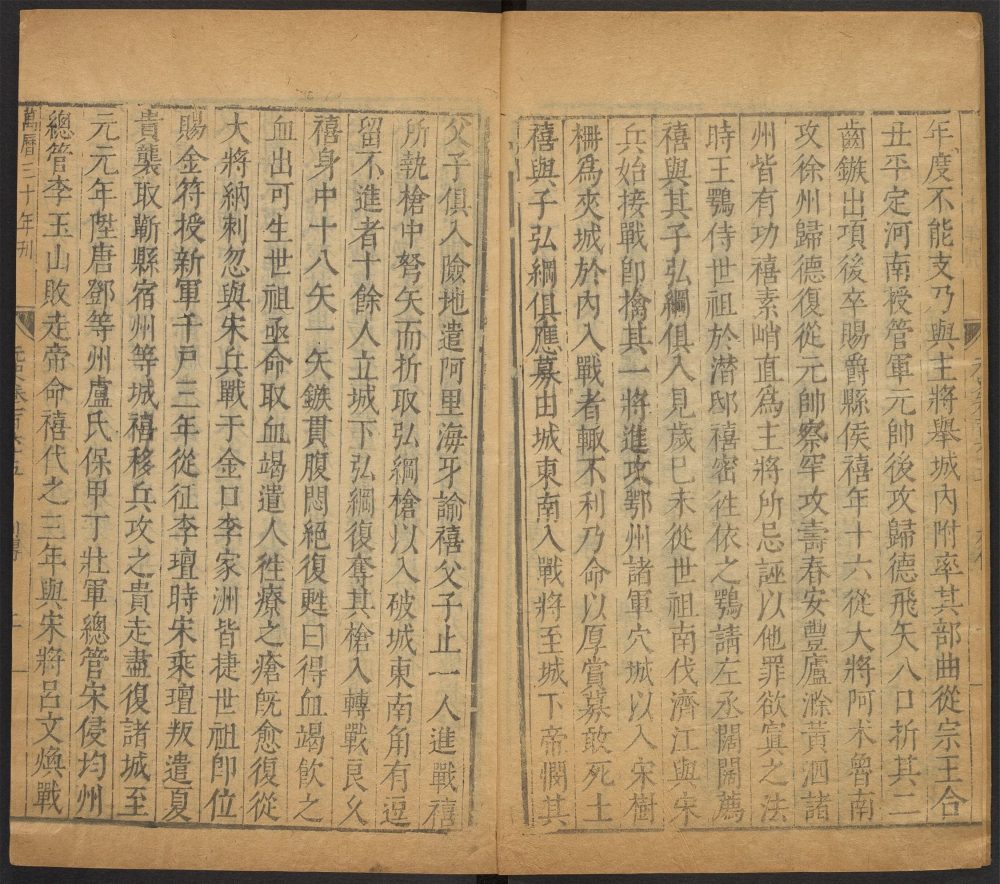 年度不能支乃與主將舉城內附率其部曲從宗王合
丑平定河南授管軍元帥後攻歸德飛矢入口折其二
齒鏃出項後卒賜爵縣侯禧年十六從大將阿朮魯南
攻徐州歸德復從元帥察罕攻壽春安豐廬滁黃泗諸
州皆有功禧素峭直爲主將所忌誣以他罪欲寘之法
時王鶚侍世祖於潛邸禧密徃依之鶚請左丞闊闊薦
禧與其子弘綱俱入見歲巳未從世祖南伐濟江與宋
兵始接戰卽擒其一將進攻鄂州諸軍穴城以入宋樹
柵爲夾城於內入戰者輙不利乃命以厚賞募敢死士
禧與子弘綱俱應募由城東南入戰將至城下帝憫其
父子俱入險地遣阿里海牙諭禧父子止一人進戰禧
所執槍中弩矢而折取弘綱槍以入破城東南角有逗
留不進者十餘人立城下弘綱復奪其槍入轉戰良久
禧身中十八矢一矢鏃貫腹悶絕復甦曰得血竭飲之
血出可生世祖亟命取血竭遣人徃療之瘡旣愈復從
大將納刺忽與宋兵戰于金口李家洲皆捷世祖卽位
賜金符授新軍千戶三年從征李璮時宋乘璮叛遣夏
貴襲取蘄縣宿州等城禧移兵攻之貴走盡復諸城至
元元年陞唐鄧等州盧氏保甲丁壯軍總管宋侵均州
總管李玉山敗走帝命禧代之三年與宋將呂文煥戰
萬曆三十年刊